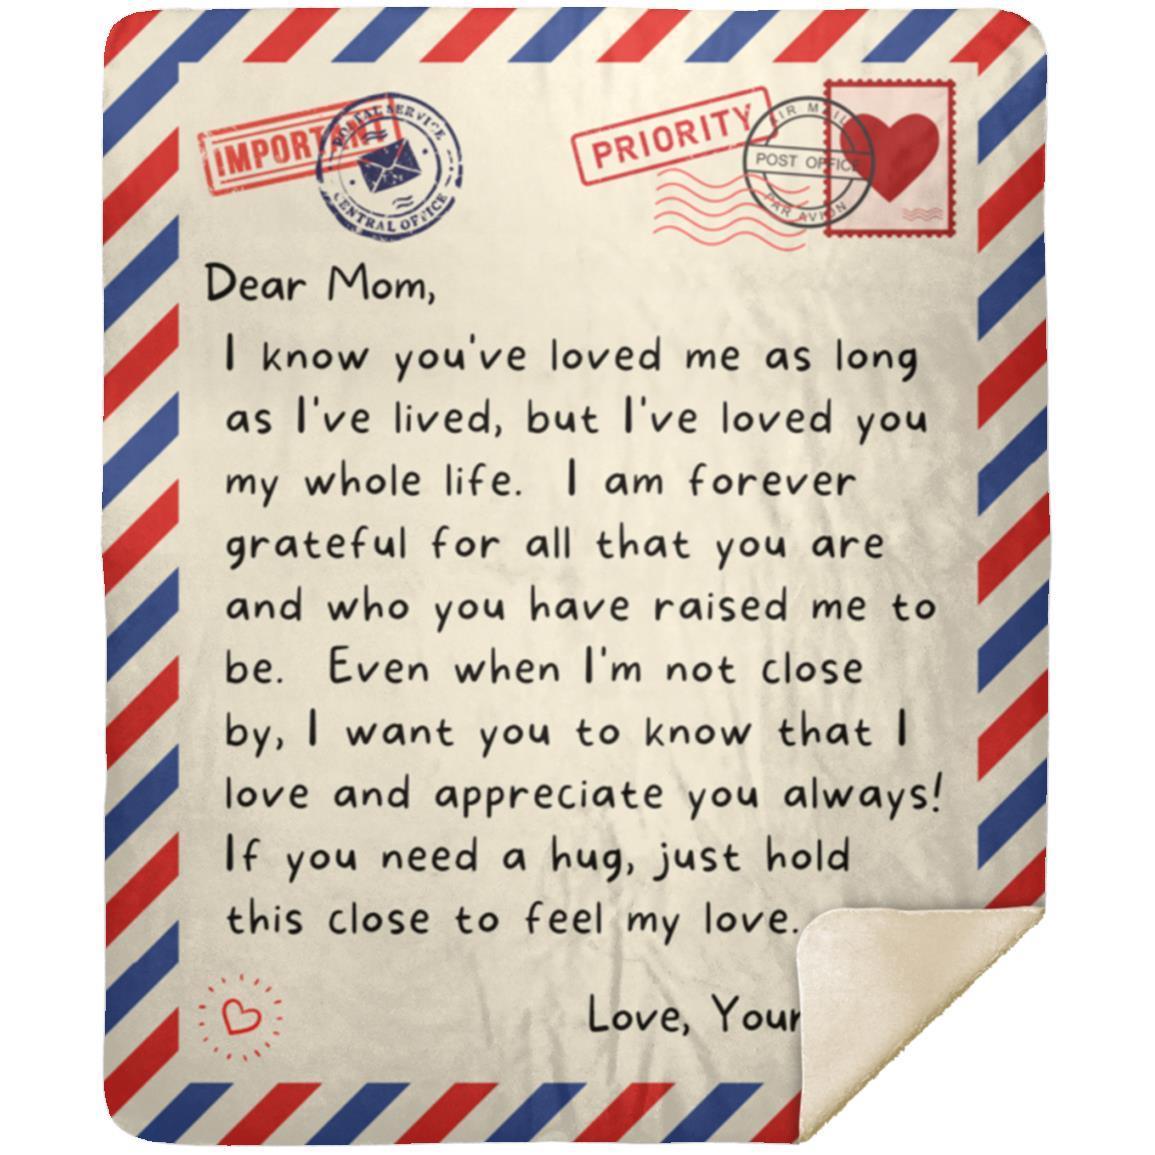 IMPORTANT
POSTAL SERVICE
CENTRAL OFFICE
PRIORITY
AIR MAIL
POST OFFICE
PAR AVION
Dear Mom,
I know you've loved me as long
as I've lived, but I've loved you
my whole life.  I am forever
grateful for all that you are
and who you have raised me to
be.  Even when I'm not close
by, I want you to know that I
love and appreciate you always!
If you need a hug, just hold
this close to feel my love.
Love, Your